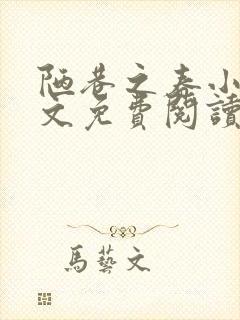 陋巷之春小
文免費閱讀
馬藝文